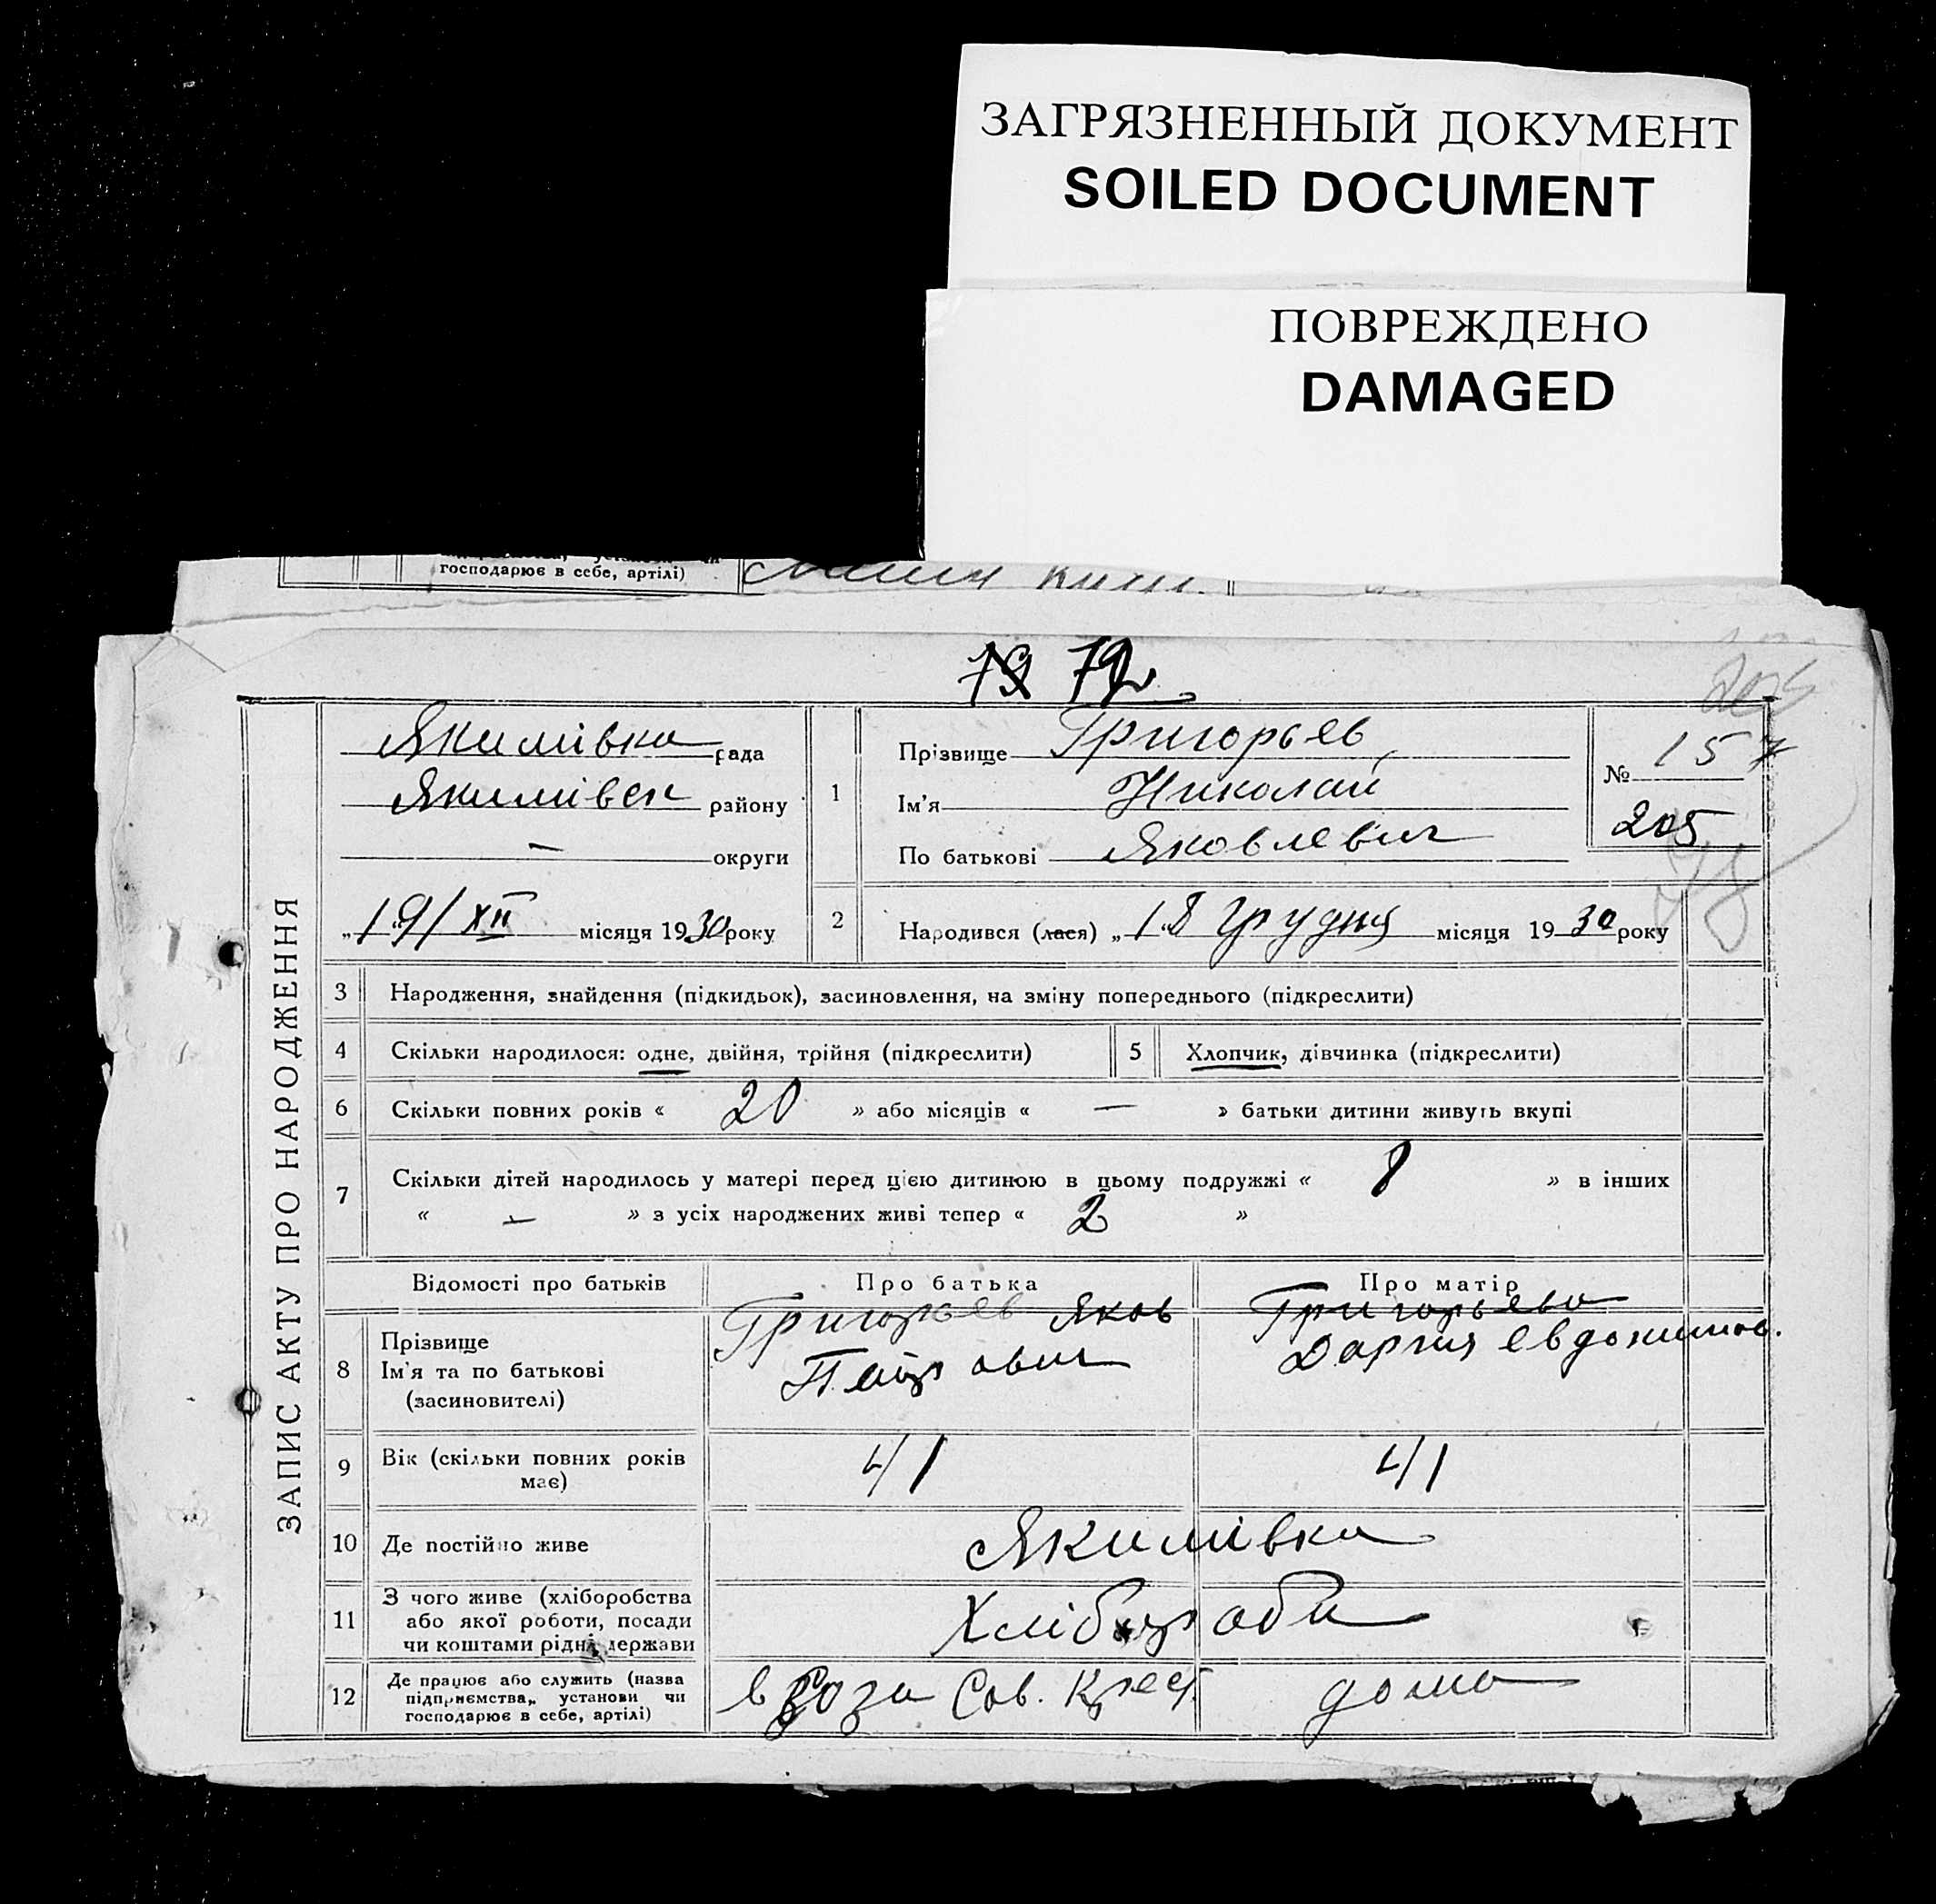 ЗАГРЯЗНЕННЫЙ ДОКУМЕНТ
SOILED DOCUMENT
ПОВРЕЖДЕНО
DAMAGED
господарює в себе, артілі)
72
ЗАПИС АКТУ ПРО НАРОДЖЕННЯ
Якимівка рада
Якимівськ району
— округи
„19/XII місяця 1930 року
1 Прізвище Григорьев
Ім'я Николай
По батькові Яковлевич
№ 157
205
2 Народився (лася) „18 грудня місяця 1930 року
3 Народження, знайдення (підкидьок), засиновлення, на зміну попереднього (підкреслити)
4 Скільки народилося: одне, двійня, трійня (підкреслити) 5 Хлопчик, дівчинка (підкреслити)
6 Скільки повних років « 20 » або місяців « — » батьки дитини живуть вкупі
7 Скільки дітей народилось у матері перед цією дитиною в цьому подружжі « 8 » в інших
« — » з усіх народжених живі тепер « 2 »
Відомості про батьків Про батька Про матір
8 Прізвище
Ім'я та по батькові
(засиновителі)
Григорьев Яков
Петрович
Григорьева
Дария Евдокимов.
9 Вік (скільки повних років
має)
41 41
10 Де постійно живе Якимівка
11 З чого живе (хліборобства
або якої роботи, посади
чи коштами рідні, держави
Хлібороби
12 Де працює або служить (назва
підприємства, установи чи
господарює в себе, артілі)
в Сов. Крест. дома